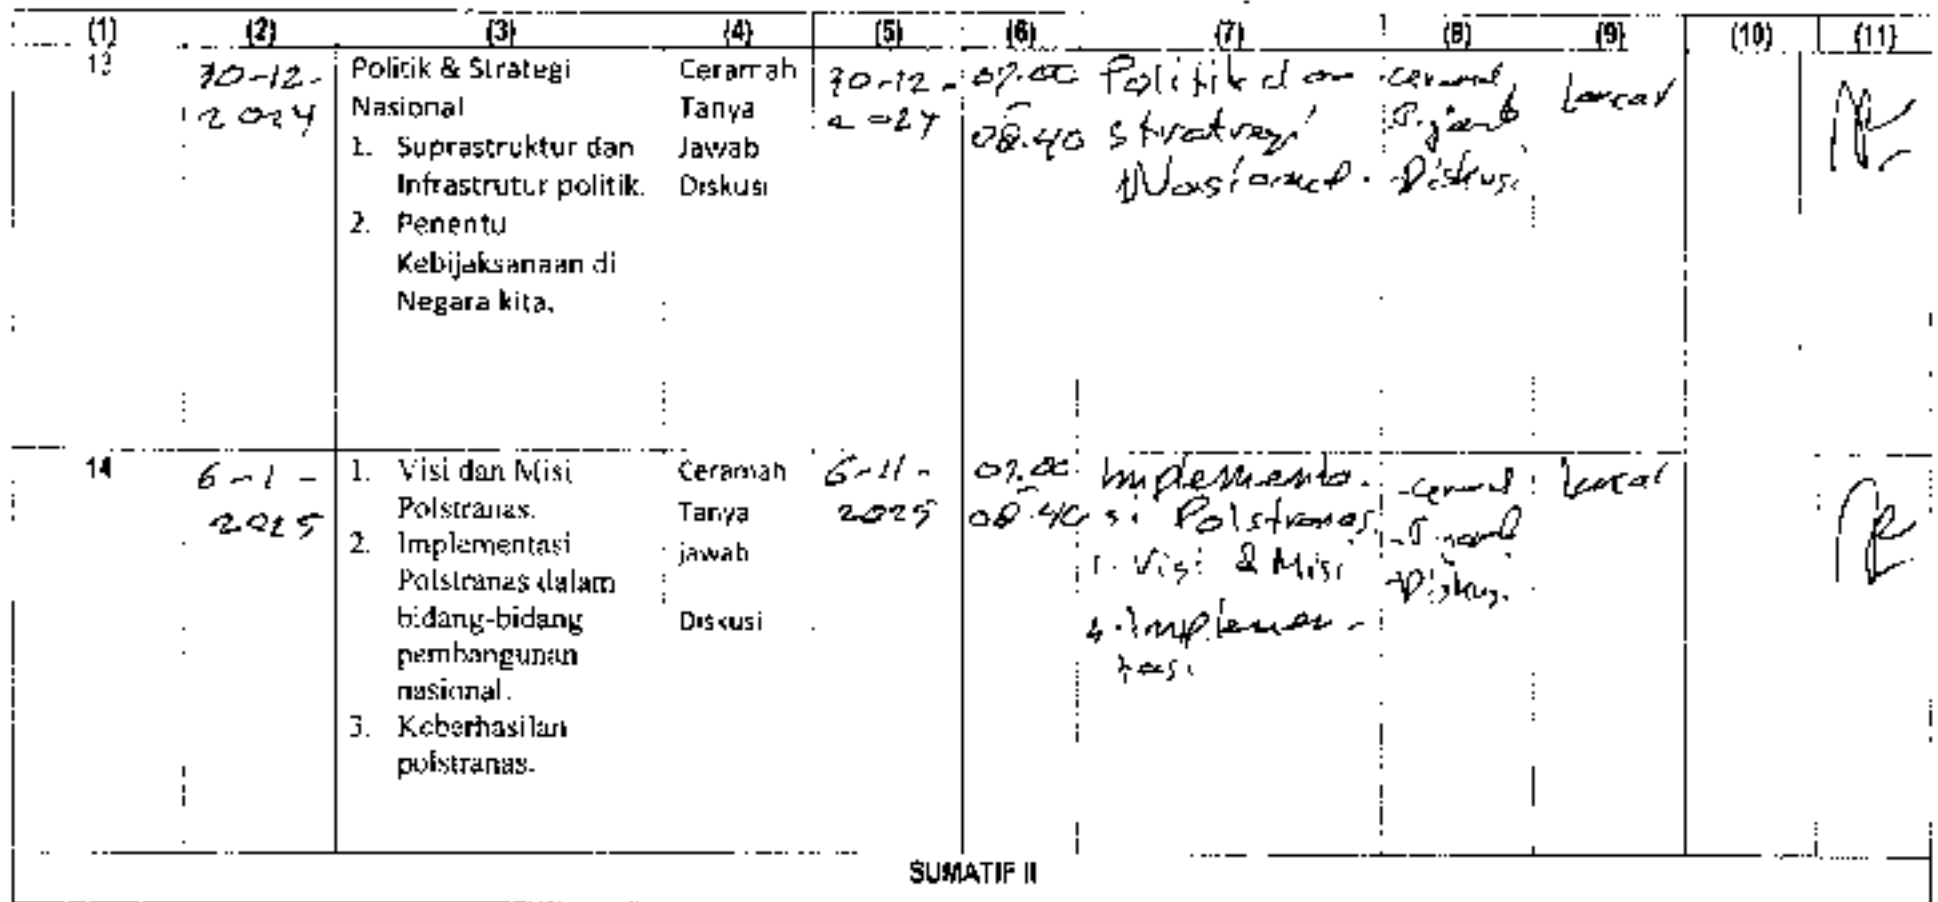 (1) (2) (3) (4) (5) (6) (7) (8) (9) (10) (11)
13
30-12-
2024
Politik & Strategi
Nasional
1. Suprastruktur dan
Infrastrutur politik.
2. Penentu
Kebijaksanaan di
Negara kita.
Ceramah
Tanya
Jawab
Diskusi
30-12-
2024
07.00
-
08.40
Politik dan
Strategi
Nasional.
Diskusi
Lancar
14
6-1-
2025
1. Visi dan Misi
Polstranas.
2. Implementasi
Polstranas dalam
bidang-bidang
pembangunan
nasional.
3. Keberhasilan
polstranas.
Ceramah
Tanya
jawab
Diskusi
2025
07.00
-
08.40
Implementa-
si Polstranas.
1. Visi & Misi
Implemen-
tasi
-Diskusi
Lancar
SUMATIF II